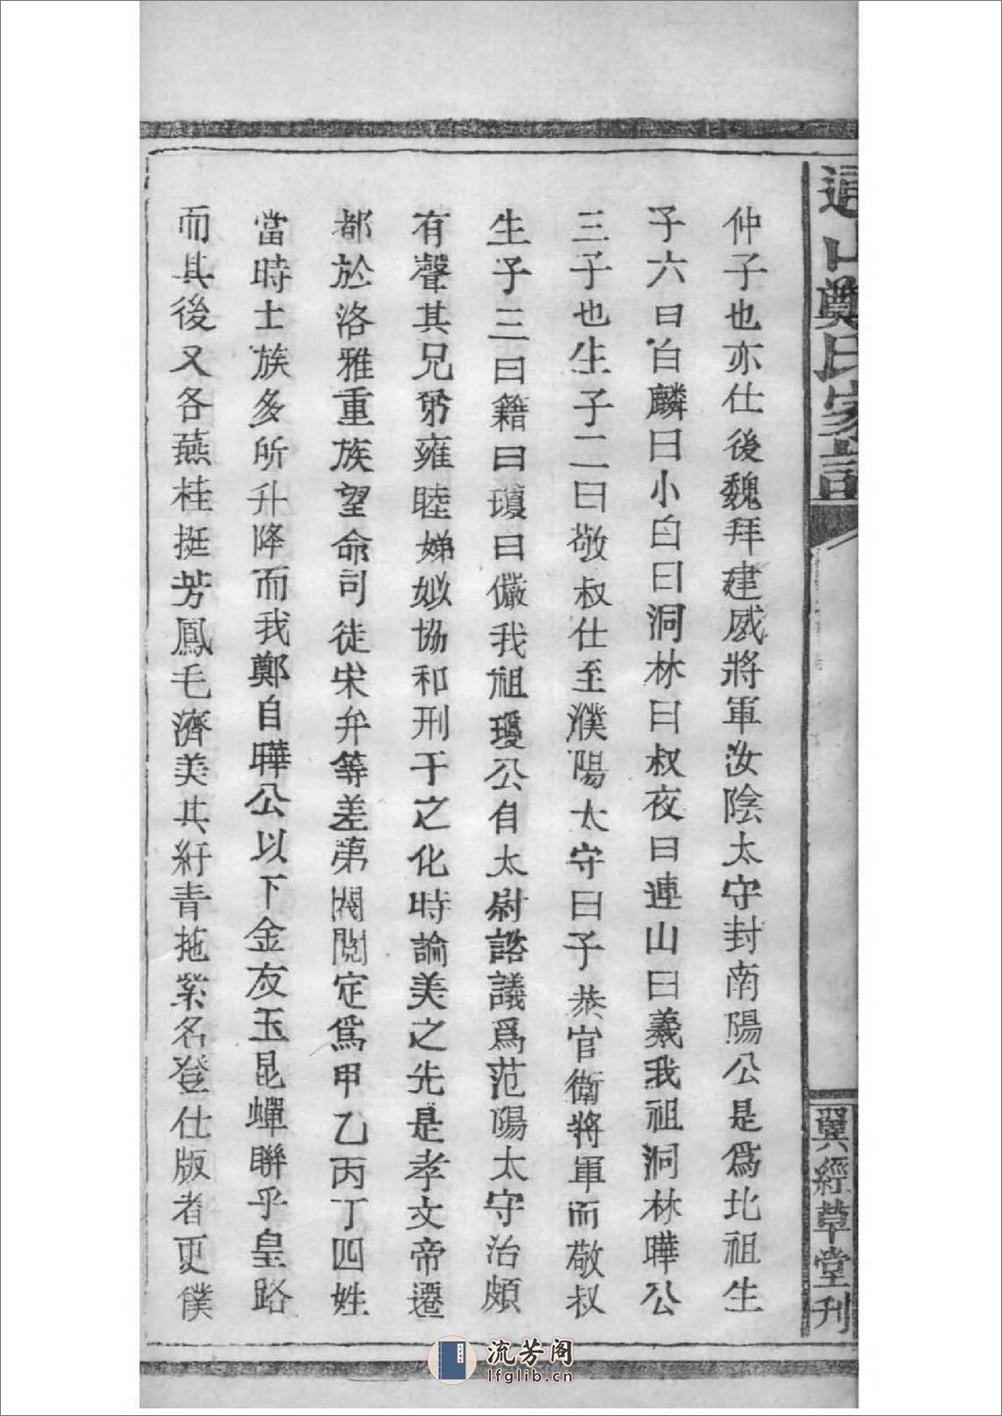 鄭氏家譜
仲子也亦仕後魏拜建威將軍汝陰太守封南陽公是爲北祖生
子六曰白麟曰小白曰洞林曰叔夜曰連山曰羲我祖洞林曄公
三子也生子二曰敬叔仕至濮陽太守曰子恭官衛將軍而敬叔
生子三曰籍曰瓊曰儼我祖瓊公自太尉諮議爲范陽太守治頗
有聲其兄弟雍睦娣姒協和刑于之化時論美之先是孝文帝遷
都於洛雅重族望命司徒宋弁等差第閥閱定爲甲乙丙丁四姓
當時士族多所升降而我鄭自曄公以下金友玉昆蟬聯乎皇路
而其後又各燕桂挺芳鳳毛濟美其紆青拖紫名登仕版者更僕
翼經草堂刊
流芳阁
lfglib.cn